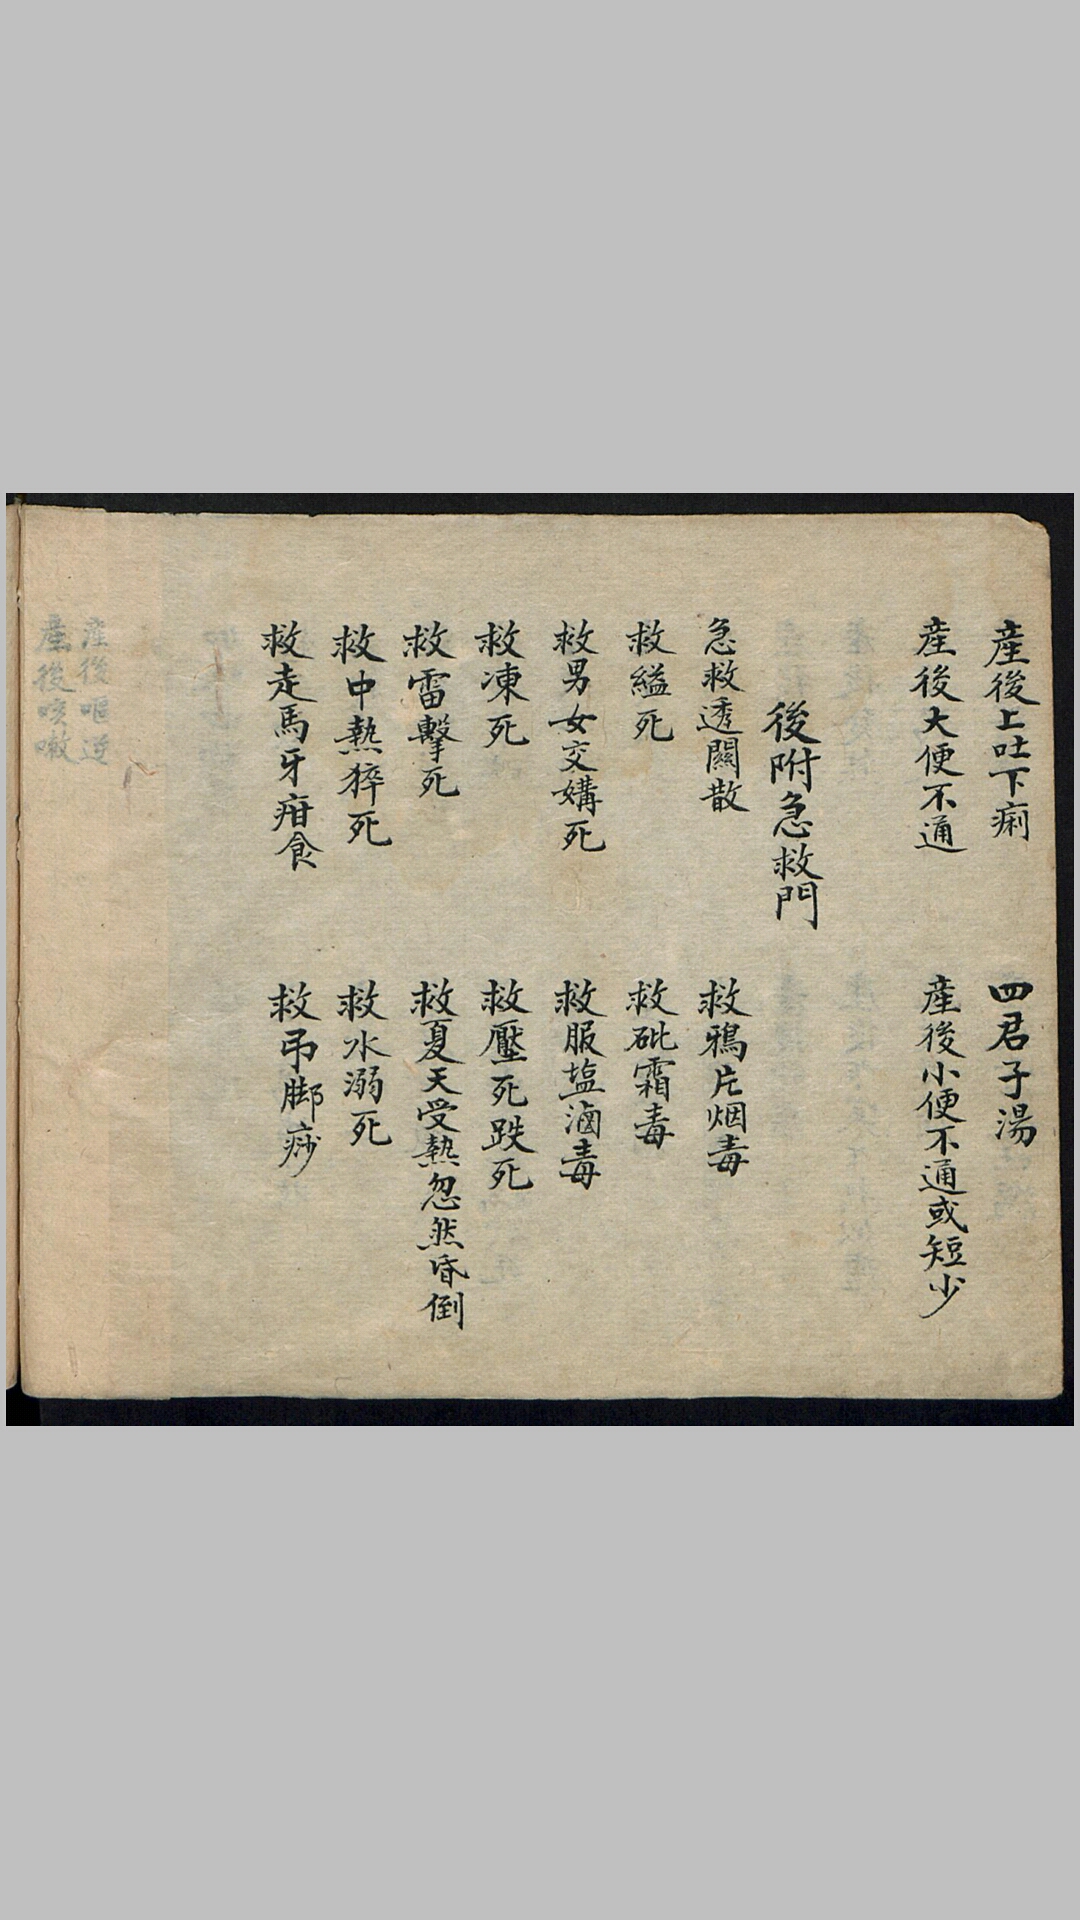 産後上吐下痢
四君子湯
産後大便不通
産後小便不通或短少
後附急救門
急救透關散
救鴉片烟毒
救縊死
救砒霜毒
救男女交媾死
救服塩滷毒
救凍死
救壓死跌死
救雷擊死
救夏天受熱忽然昏倒
救中熱猝死
救水溺死
救走馬牙疳食
救吊脚痧
産後嘔逆
産後咳嗽